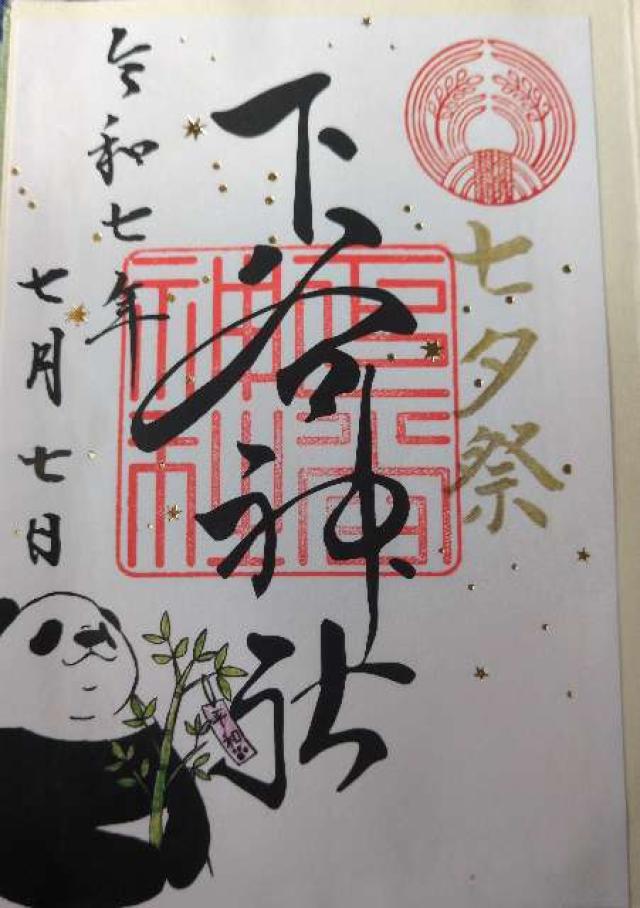 七夕祭
下谷神社
令和七年
七月七日
平和